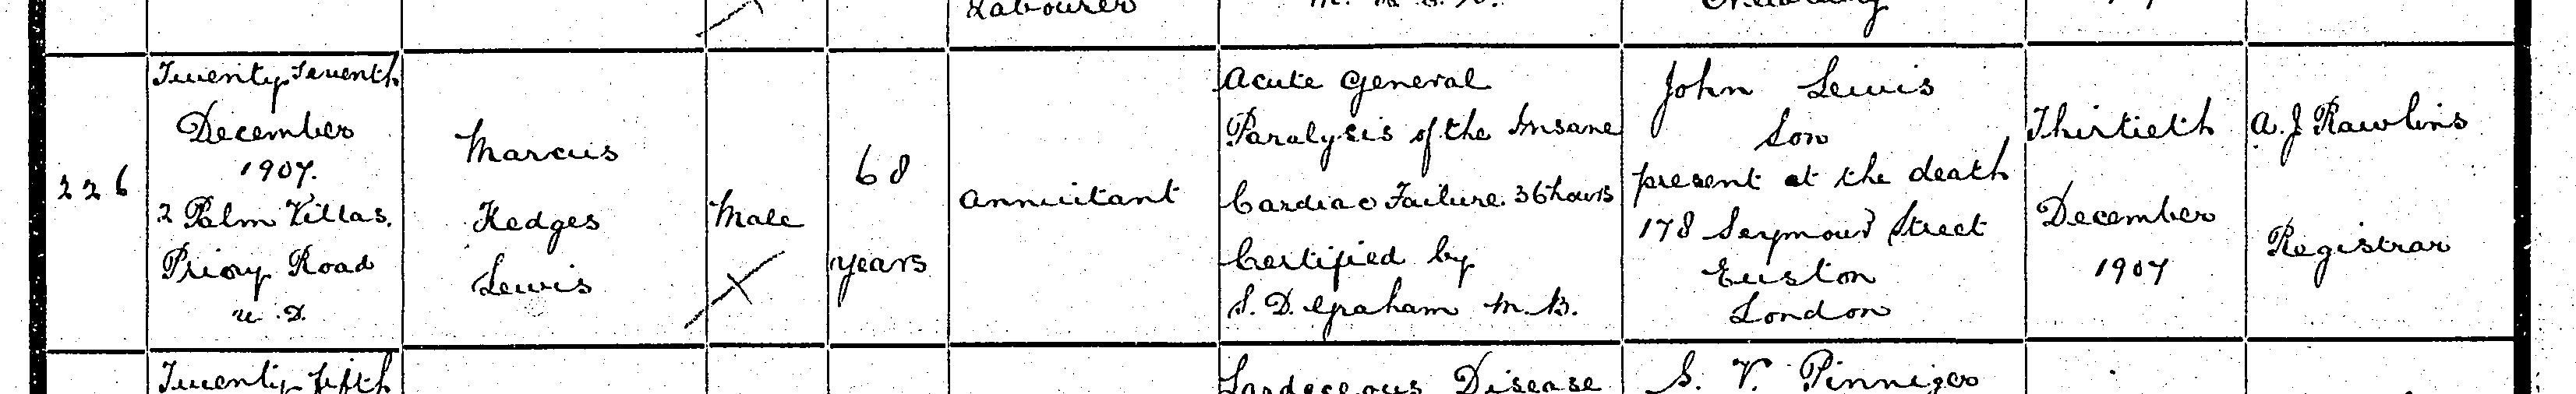 Labourer
226
Twenty Seventh
December
1907.
2 Palm Villas.
Priory Road
U. D.
Marcus
Hedges
Lewis
Male
68
years
Annuitant
Acute General
Paralysis of the Insane
Cardiac Failure. 36 hours
Certified by
S. D. Graham M. B.
John Lewis
Son
present at the death
178 Seymour Street
Euston
London
Thirtieth
December
1907
A. J Rawlins
Registrar
Twenty fifth
Lardaceous Disease
S. V. Pinniger